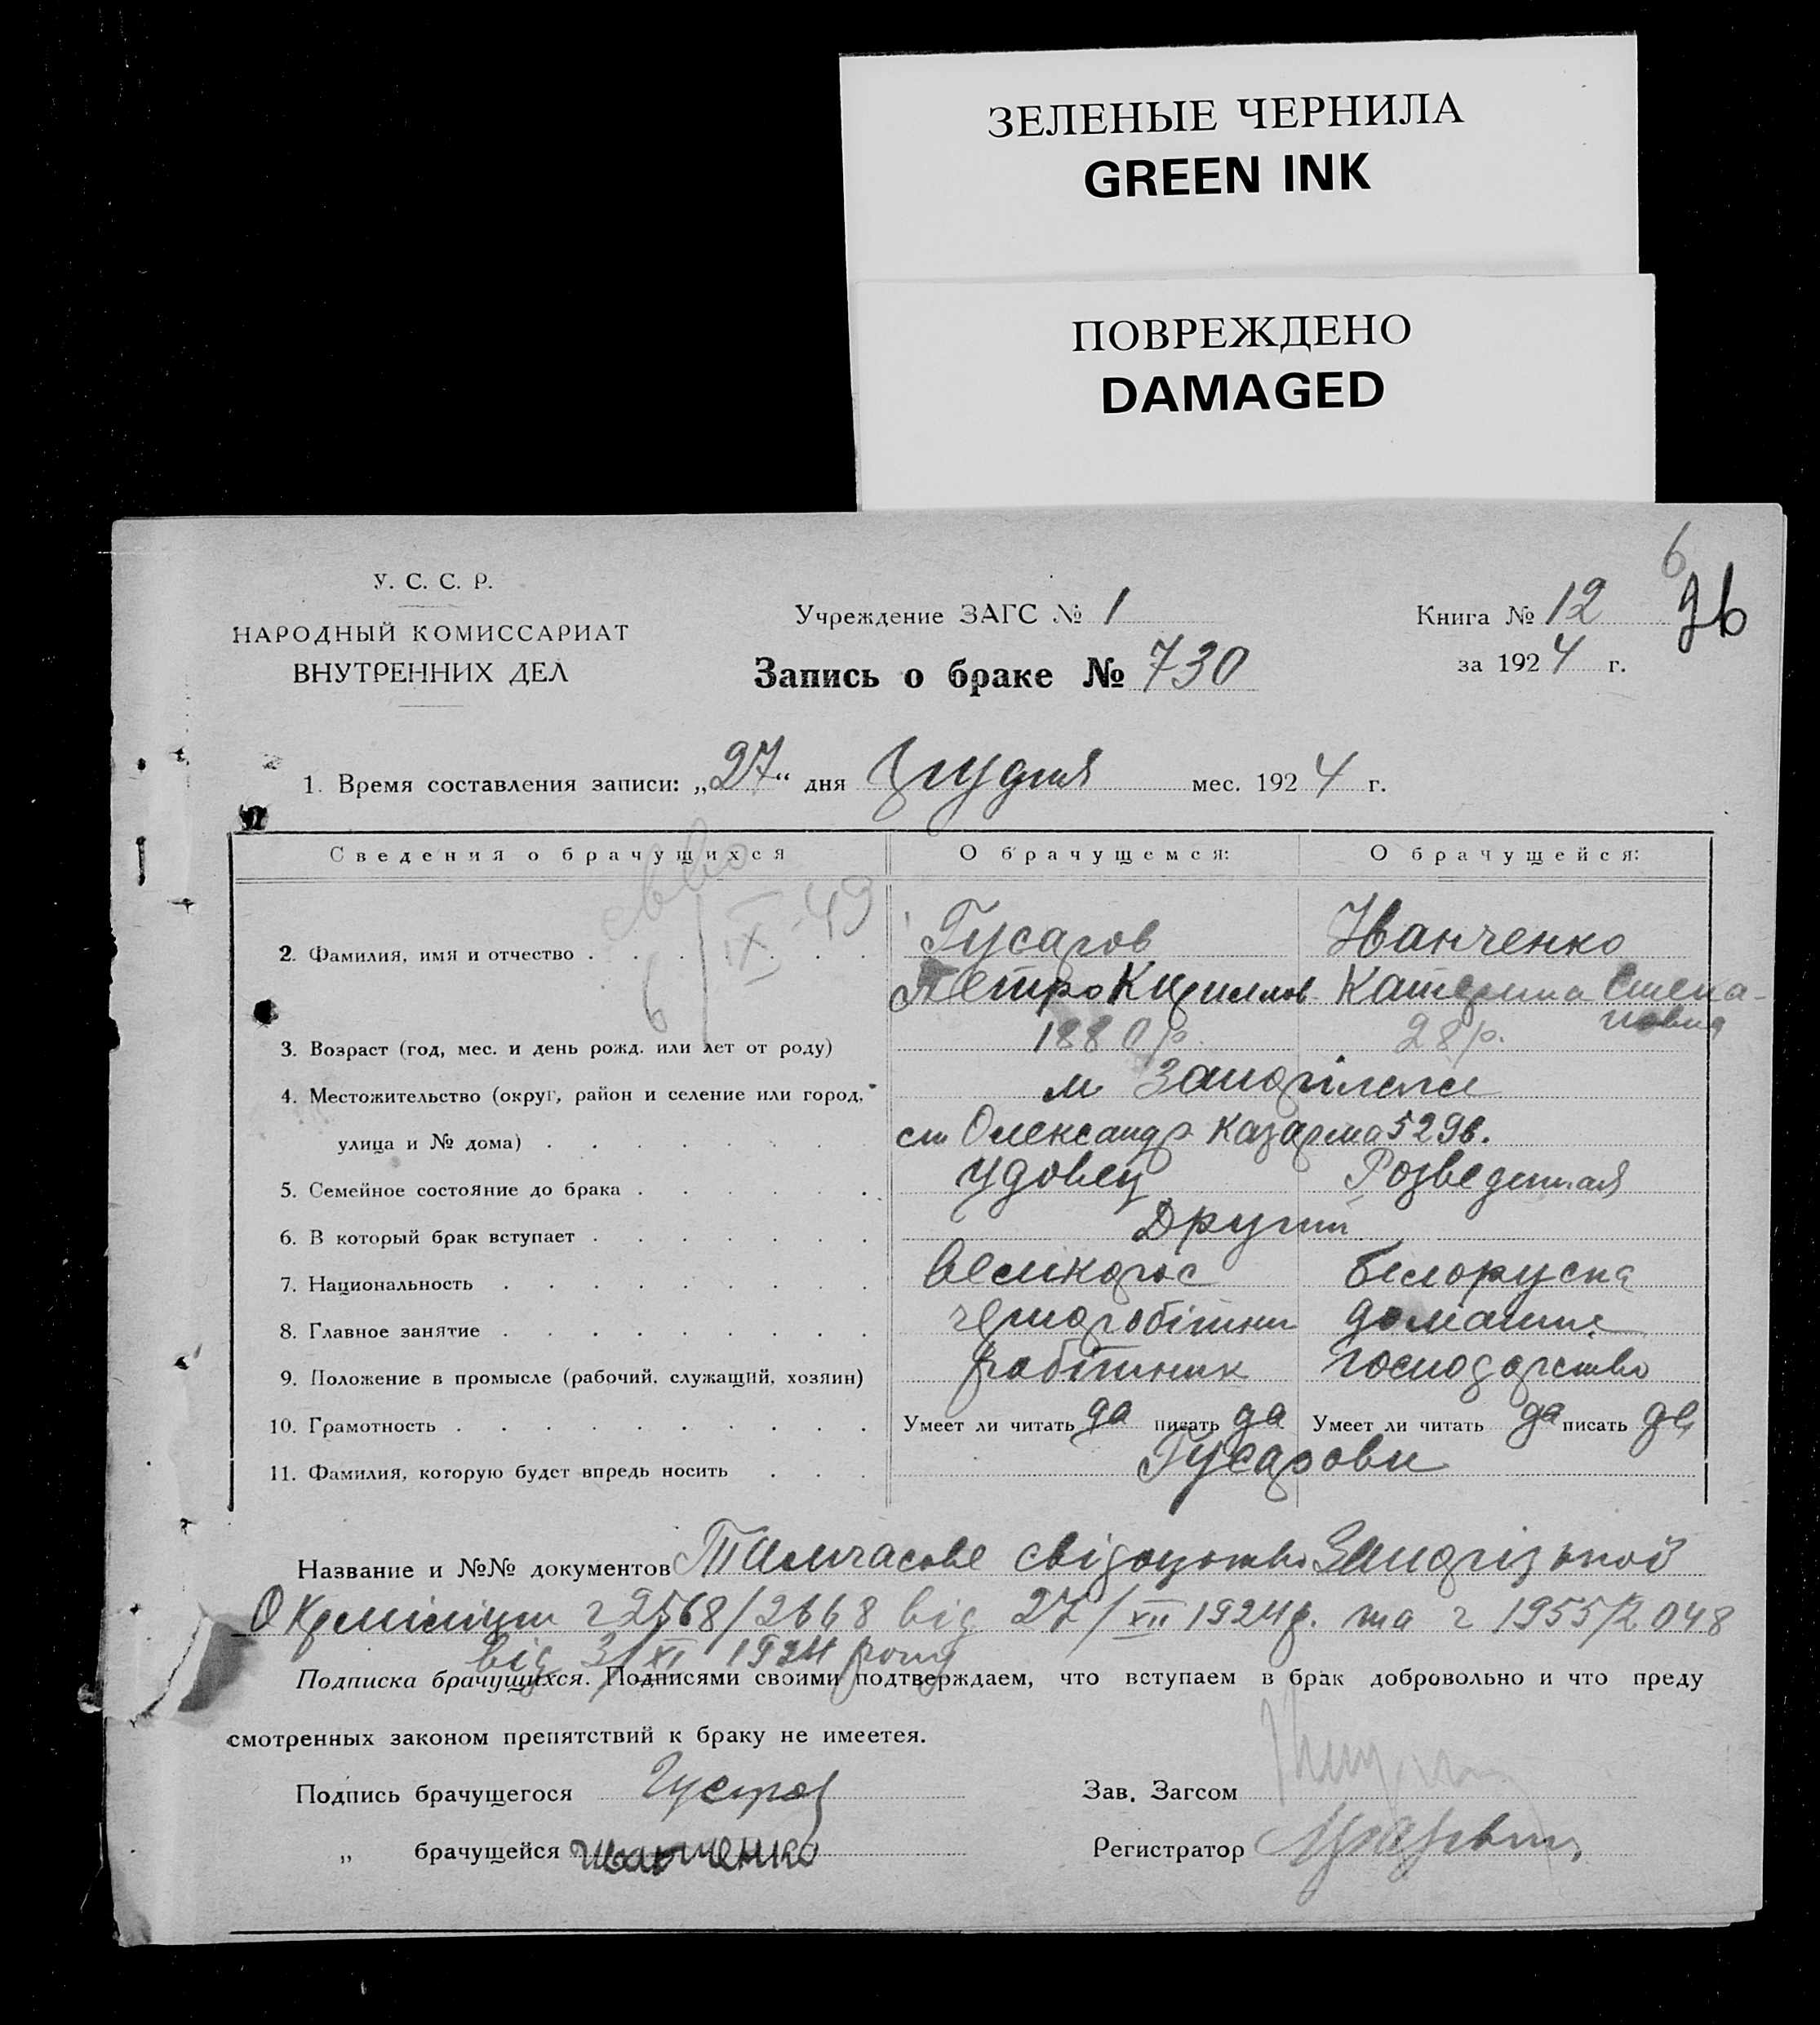 ЗЕЛЕНЫЕ ЧЕРНИЛА
GREEN INK
ПОВРЕЖДЕНО
DAMAGED
6
У. С. С. Р.
НАРОДНЫЙ КОМИССАРИАТ
ВНУТРЕННИХ ДЕЛ
Учреждение ЗАГС № 1
Запись о браке № 730
Книга № 12
за 1924 г.
1. Время составления записи: „27" дня грудня мес. 1924 г.
Сведения о брачущихся О брачущемся: О брачущейся:
6/IX-49
2. Фамилия, имя и отчество Гусаров Иванченко
Петро Кирилов Катерина Степановна
3. Возраст (год, мес. и день рожд. или лет от роду) 1880 р. 28 р.
4. Местожительство (округ, район и селение или город, м Запоріжжя
улица и № дома) ст Олександр казарма 529в.
5. Семейное состояние до брака удовец Розведенная
6. В который брак вступает Другий
7. Национальность великорос білоруска
8. Главное занятие чорноробітник домашнє
9. Положение в промысле (рабочий, служащий, хозяин) робітник господарство
10. Грамотность Умеет ли читать да писать да Умеет ли читать да писать да
11. Фамилия, которую будет впредь носить Гусарови
Название и №№ документов Тимчасове свідоцтво Запорізької
Окрміліції 2568/2668 від 27/XII 1924р. та 1955/2048
від 3/XI 1924 року
Подписка брачущихся. Подписями своими подтверждаем, что вступаем в брак добровольно и что преду
смотренных законом препятствий к браку не имеетея.
Подпись брачущегося Зав. Загсом
„ брачущейся Иванченко Регистратор